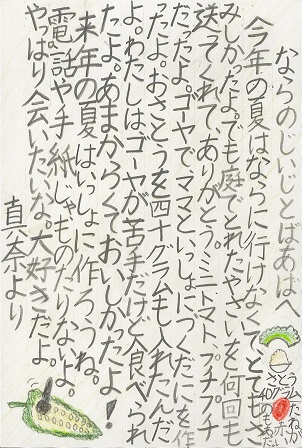 ならのじいじとばあばへ
今年の夏はならに行けなくてとてもさ
みしかったよ。でも庭でとれたやさいを何回も
送ってくれて、ありがとう。ミニトマト、プチプチ
だったよ。ゴーヤで、ママといっしょにつくだにを作
ったよ。おさとうを四十グラムも入れたんだ
よ。わたしはゴーヤが苦手だけど食べられ
たよ。あまからくておいしかったよ！
来年の夏はいっしょに作ろうね。
電話や手紙じゃものたりないよ。
やはり会いたいな。大好きだよ。
真奈より